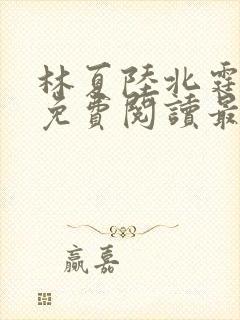 林夏陸北霆
免費閱讀最
贏嘉